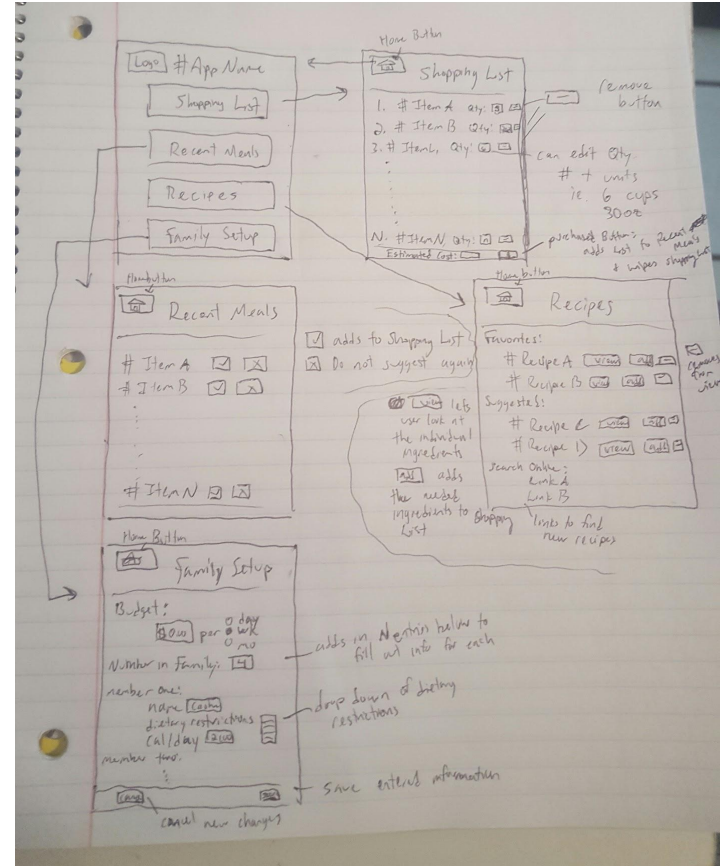 Home Button
Logo # App Name
Shopping List
Recent Meals
Recipes
Family Setup
Shopping List
1. # Item A Qty:
2. # Item B Qty:
3. # Item C, Qty:
N. # Item N Qty:
Estimated Cost:
remove
button
can edit Qty
# + units
ie. 6 cups
30oz
purchased Button:
adds List to Recent
Meals
& wipes shopping list
Home button
Recent Meals
# Item A
# Item B
# Item N
adds to Shopping List
X Do not suggest again
Home button
Recipes
Favorites:
# Recipe A view add -
# Recipe B view add -
Suggested:
# Recipe C view add -
# Recipe D view add -
Search Online:
Link A
Link B
removes
from
view
links to find
new recipes
view lets
user look at
the individual
ingredients
add adds
the needed
ingredients to Shopping
List
Home Button
Family Setup
Budget:
per
day
wk
mo
Number in Family: 4
member one:
name
dietary restrictions
cal/day 2100
member two:
adds in N entries below to
fill out info for each
drop down of dietary
restrictions
save entered information
cancel new changes